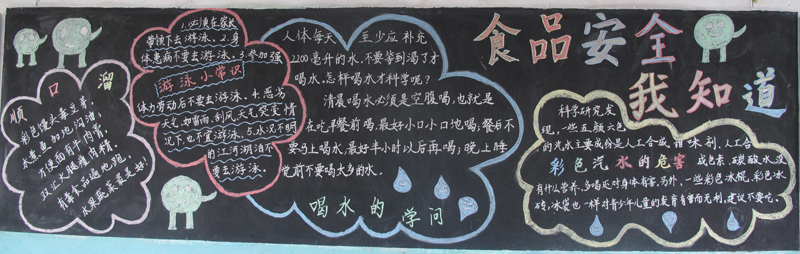 食品安全
我知道
顺口溜
彩色馒头毒豆芽，
水煮鱼加地沟油，
方便面有牛肉膏，
双汇火腿瘦肉精，
有毒食品遍地现，
1.必须在家长
带领下去游泳。2.身
体患病不要去游泳。3.参加强
游泳小常识
体力劳动后不要去游泳。4.恶劣
天气如雷雨、刮风天气突变情
况下，也不宜游泳。5.水况不明
的江河湖泊不
要去游泳。
人体每天 至少应补充
2200毫升的水，不要等到渴了才
喝水，怎样喝水才科学呢？
清晨喝水必须是空腹喝，也就是
在吃早餐前喝，最好小口小口地喝；餐后不
要马上喝水，最好半小时以后再喝；晚上睡
觉前不要喝太多的水。
喝水的学问
科学研究发
现，一些五颜六色
的汽水主要成份是人工合成甜味剂、人工合
彩色汽水的危害
成色素、碳酸水，没
有什么营养，多喝反对身体有害。另外，一些彩色冰棍、彩色冰
砖、冰袋也一样对青少年儿童的发育有害而无利，建议不要吃。